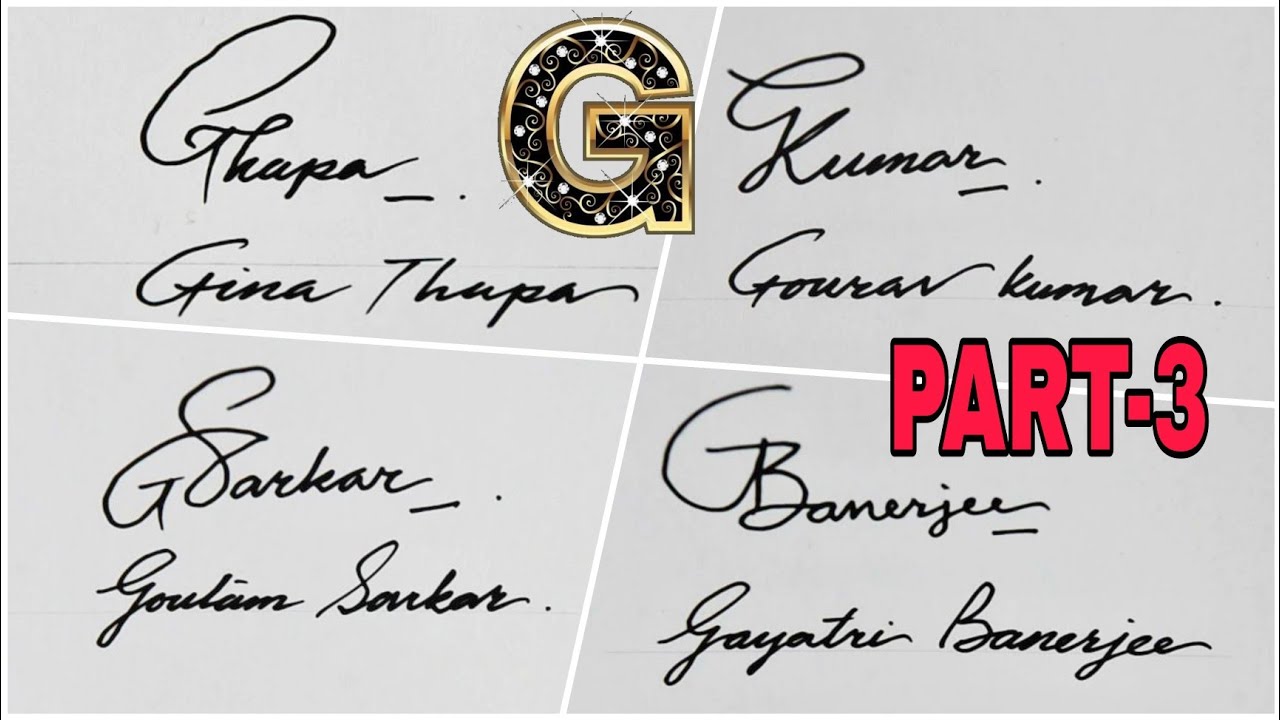 GThapa
G
Gina Thapa
GKumar
Gourav Kumar.
PART-3
GSarkar
Goutam Sarkar.
GBanerjee
Gayatri Banerjee